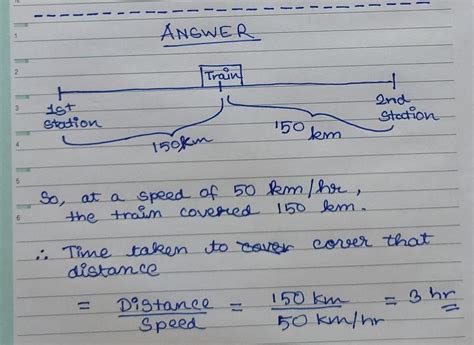 ANSWER
Train
1st
station
2nd
station
150km
150
km
So, at a speed of 50 km/hr,
the train covered 150 km.
∴ Time taken to cover cover that
distance
= Distance/Speed = 150 km/50 km/hr = 3 hr